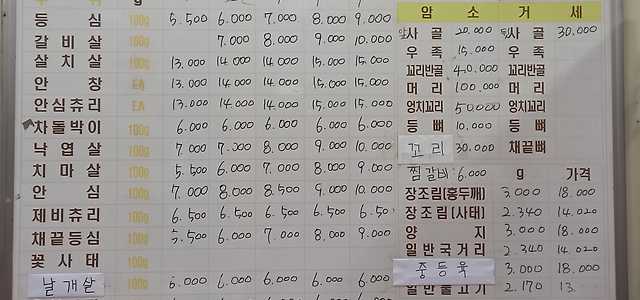 g
등 심 100g 5.500 6.000 7.000 8.000 9.000
갈비살 100g 7.000 8.000 9.000 10.000
살치살 100g 13.000 14.000 14.000 15.000 15.000
안 창 EA 13.000 14.000 14.000 15.000 15.000
안심츄리 EA 13.000 14.000 14.000 15.000 15.000
차돌박이 100g 6.000 6.000 6.000 6.000 6.000
낙엽살 100g 7.000 7.000 8.000 9.000 10.000
치마살 100g 5.500 6.000 7.000 8.000 9.000
안 심 100g 7.000 8.000 8.500 9.000 10.000
제비츄리 100g 6.500 6.500 6.500 6.500 6.500
채끝등심 100g 5.500 6.000 7.000 8.000 9.000
꽃사태 100g
날개살 100g 6.000 6.000 6.000 6.000 6.000
암 소 거 세
사골 20.000 사골 30.000
우족 15.000 우족
꼬리반골 40.000 꼬리반골
머리 100.000 머리
엉치꼬리 50.000 엉치꼬리
등뼈 10.000 등뼈
꼬리 30.000 채끝뼈
찜갈비 6.000 g 가격
장조림(홍두깨) 3.000 18.000
장조림(사태) 2.340 14.020
양 지 3.000 18.000
일반국거리 2.340 14.020
중등육 3.000 18.000
일반불고기 2.170 13.